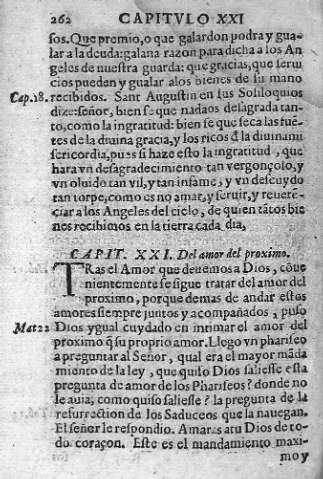 262 CAPITVLO XXI
sos. Que premio, o que galardon podra y gua-
lar a la deuda: galana razon para dicha a los An
geles de nuestra guarda: que gracias, que serui
cios pueden y gualar a los bienes de su mano
Cap. 18. recibidos. Sant Augustin en sus Soliloquios
dize: señor, bien se que nada os desagrada tan-
to, como la ingratitud: bien se que seca las fuē-
tes de la diuina gracia, y los rios d̄ la diuina mi
sericordia, pues si haze esto la ingratitud, que
hara vn desagradecimiento tan vergonçoso, y
vn oluido tan vil, y tan infame, y vn descuydo
tan torpe, como es no amar, y seruir, y reuere-
ciar a los Angeles del cielo, de quien tātos bie
nes recibimos en la tierra cada dia,
CAPIT. XXI. Del amor del proximo.
TRas el Amor que deuemos a Dios, cōue
nientemente se sigue tratar del amor del
proximo, porque demas de andar estos
amores siempre juntos y acompañados, puso
Mat 22 Dios ygual cuydado en intimar el amor del
proximo q̄ su proprio amor. Llego vn phariseo
a preguntar al Señor, qual era el mayor māda
miento de la ley, que quiso Dios saliesse esta
pregunta de amor de los Phariseos? donde no
le auia; como quiso saliesse? la pregunta de la
resurrection de los Saduceos que la nauegan.
El señor le respondio. Amaras a tu Dios de to-
do coraçon. Este es el mandamiento maxi-
mo y